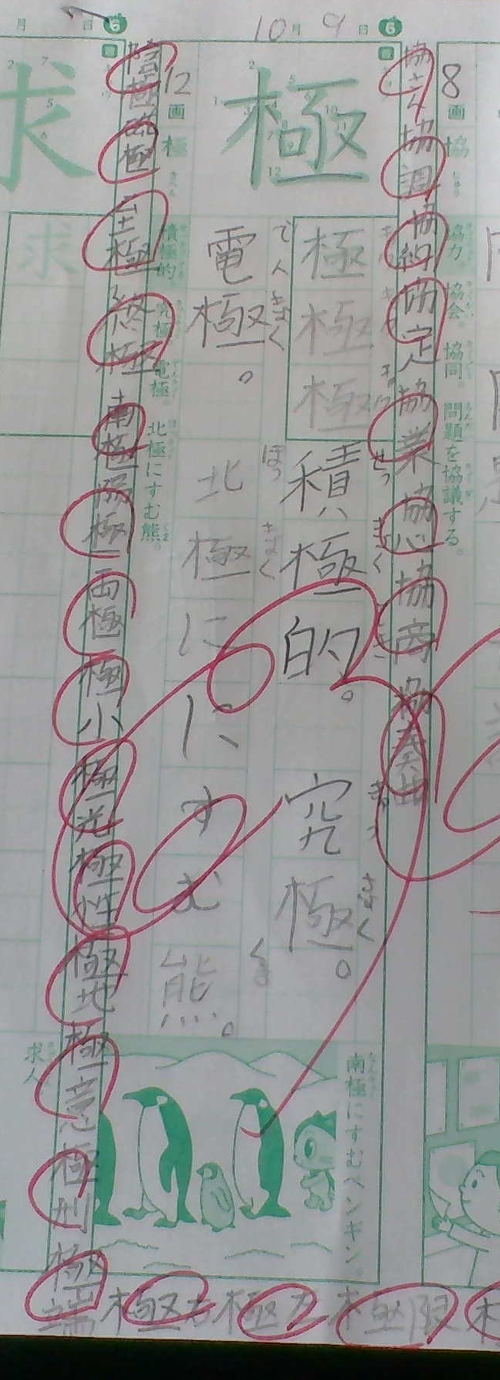 10月9日
8画
協
協力 協会 協同 問題を協議する。
協調 協約 協定 協業 協心 協商 協奏曲
極
極
極
極
積極的。
せっ きょく てき
究極。
きゅう きょく
電極。
でん きょく
北極ににすむ熊。
ほっ きょく くま
南極にすむペンギン。
12画
極
積極的 究極 電極 北極にすむ熊。
陰極 至極 終極 南極 陽極 両極 極小 極光 極性 極地 極意 極刑 極端
極右 極左 極限
求
求
求人